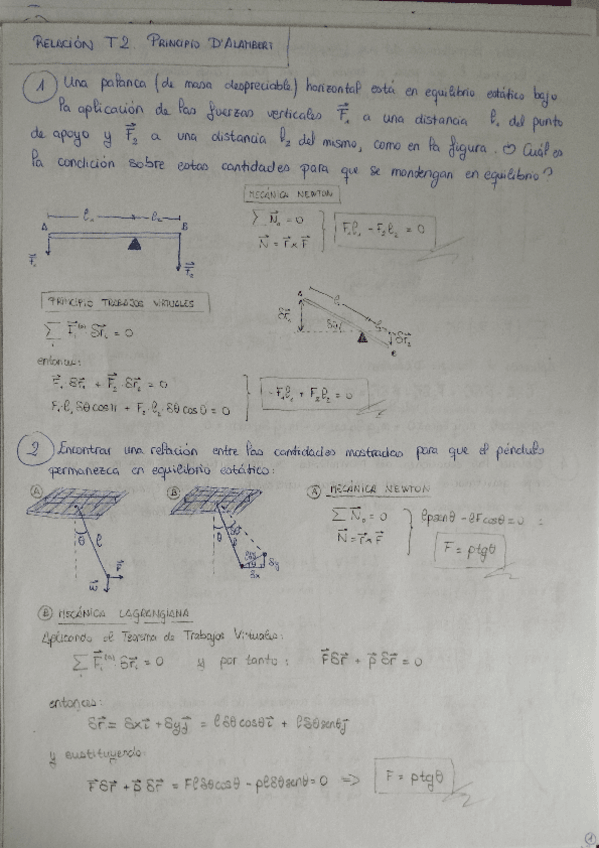 RELACIÓN T2. PRINCIPIO D'ALAMBERT
1 Una palanca (de masa despreciable) horizontal está en equilibrio estático bajo
la aplicación de las fuerzas verticales F⃗₁ a una distancia l₁ del punto
de apoyo y F⃗₂ a una distancia l₂ del mismo, como en la figura. ¿Cuál es
la condición sobre estas cantidades para que se mantengan en equilibrio?
MECÁNICA NEWTON
∑ N⃗₀ = 0
N⃗ = r⃗ x F⃗
F₁l₁ - F₂l₂ = 0
l₁ l₂
A B
F⃗₁ F⃗₂
PRINCIPIO TRABAJOS VIRTUALES
∑ F⃗ᵢ⁽ᵃ⁾ δr⃗ᵢ = 0
A
l₁
l₂
δr⃗₁ δθ δr⃗₂
B
entonces:
F⃗₁·δr⃗₁ + F⃗₂·δr⃗₂ = 0
F₁·l₁ δθ cosπ + F₂·l₂·δθ cos0 = 0
-F₁l₁ + F₂l₂ = 0
2 Encontrar una relación entre las cantidades mostradas para que el péndulo
permanezca en equilibrio estático:
A B
θ l
F⃗
θ δθ
δx δy
A MECÁNICA NEWTON
∑ N⃗₀ = 0
N⃗ = r⃗ x F⃗
lpsenθ - lFcosθ = 0 :
F = ptgθ
B MECÁNICA LAGRANGIANA
Aplicando el Teorema de Trabajos Virtuales:
∑ F⃗ᵢ⁽ᵃ⁾ δr⃗ᵢ = 0 y por tanto: F⃗δr⃗ + p⃗δr⃗ = 0
entonces:
δr⃗ = δxi⃗ + δyj⃗ = lδθcosθi⃗ + lδθsenθj⃗
y sustituyendo:
F⃗δr⃗ + p⃗δr⃗ = Flδθcosθ - plδθsenθ = 0 => F = ptgθ
1